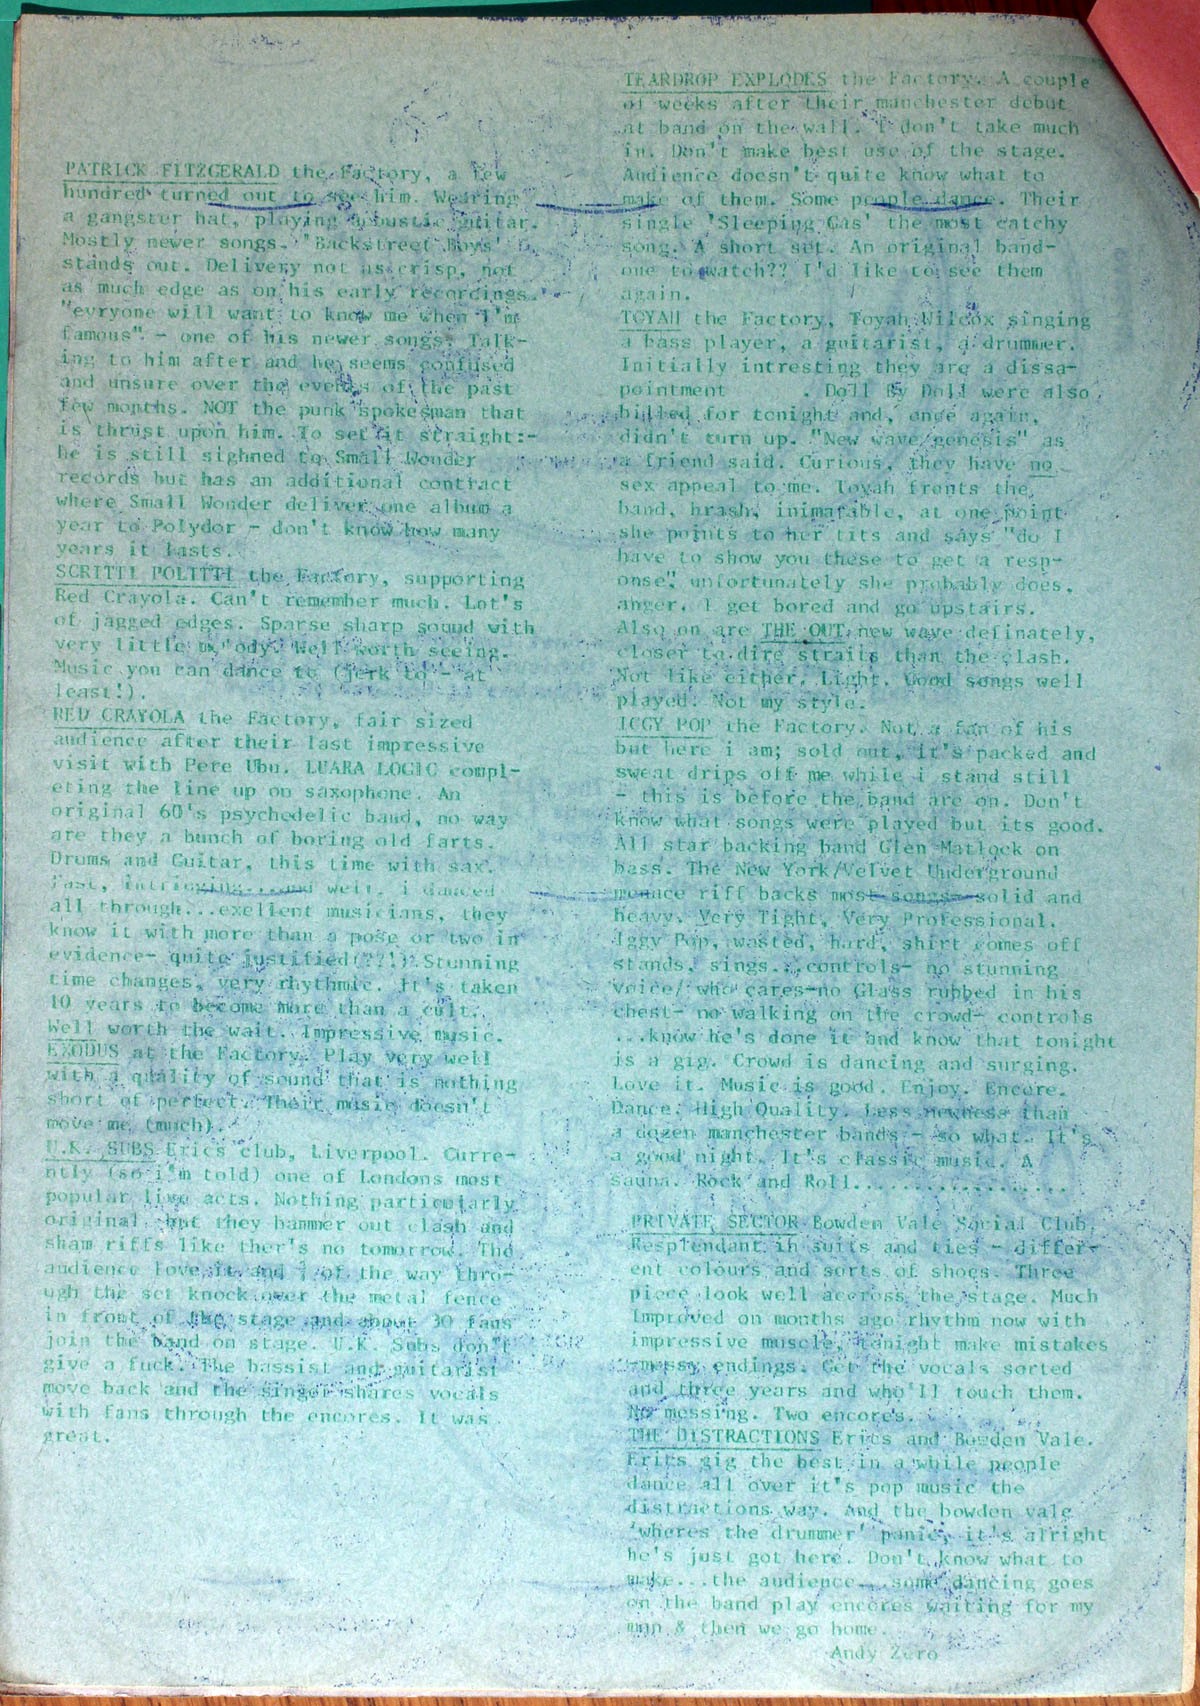 PATRICK FITZGERALD the Factory, a few
hundred turned out to see him. Wearing
a gangster hat, playing acoustic guitar.
Mostly newer songs. "Backstreet Boys'
stands out. Delivery not as crisp, not
as much edge as on his early recordings.
"evryone will want to know me when I'm
famous" - one of his newer songs. Talk-
ing to him after and he seems confused
and unsure over the events of the past
few months. NOT the punk spokesman that
is thrust upon him. To set it straight:-
he is still sighned to Small Wonder
records but has an additional contract
where Small Wonder deliver one album a
year to Polydor - don't know how many
years it lasts.
SCRITTI POLITTI the Factory, supporting
Red Crayola. Can't remember much. Lot's
of jagged edges. Sparse sharp sound with
very little melody. Well worth seeing.
Music you can dance to (jerk to - at
least!).
RED CRAYOLA the Factory, fair sized
audience after their last impressive
visit with Pere Ubu. LUARA LOGIC compl-
eting the line up on saxophone. An
original 60's psychedelic band, no way
are they a bunch of boring old farts.
Drums and Guitar, this time with sax.
Fast, intriging...and well, i danced
all through...exellent musicians, they
know it with more than a pose or two in
evidence- quite justified(??!) Stunning
time changes, very rhythmic. It's taken
10 years to become more than a cult.
Well worth the wait. Impressive music.
EXODUS at the Factory. Play very well
with a quality of sound that is nothing
short of perfect. Their music doesn't
move me (much).
U.K. SUBS Erics club, Liverpool. Curre-
ntly (so i'm told) one of Londons most
popular live acts. Nothing particularly
original but they hammer out clash and
sham riffs like ther's no tomorrow. The
audience love it and of the way thro-
ugh the set knock over the metal fence
in front of the stage and about 30 fans
join the band on stage. U.K. Subs don't
give a fuck. The bassist and guitarist
move back and the singer shares vocals
with fans through the encores. It was
great.
TEARDROP EXPLODES the Factory. A couple
of weeks after their manchester debut
at band on the wall. I don't take much
in. Don't make best use of the stage.
Audience doesn't quite know what to
make of them. Some people dance. Their
single 'Sleeping Gas' the most catchy
song. A short set. An original band-
one to watch?? I'd like to see them
again.
TOYAH the Factory, Toyah Wilcox singing
a bass player, a guitarist, a drummer.
Initially intresting they are a dissa-
pointment . Doll By Doll were also
billed for tonight and, once again,
didn't turn up. "New wave genesis" as
a friend said. Curious, they have no
sex appeal to me. Toyah fronts the
band, brash, inimatable, at one point
she points to her tits and says "do I
have to show you these to get a resp-
onse" unfortunately she probably does.
anger. I get bored and go upstairs.
Also on are THE OUT new wave definately,
closer to dire straits than the clash.
Not like either. Light. Good songs well
played. Not my style.
IGGY POP the Factory. Not a fan of his
but here i am; sold out, it's packed and
sweat drips off me while i stand still
- this is before the band are on. Don't
know what songs were played but its good.
All star backing band Glen Matlock on
bass. The New York/Velvet Underground
menace riff backs most songs- solid and
heavy. Very Tight, Very Professional.
Iggy Pop, wasted, hard, shirt comes off
stands, sings...controls- no stunning
voice/ who cares-no Glass rubbed in his
chest- no walking on the crowd- controls
...know he's done it and know that tonight
is a gig. Crowd is dancing and surging.
Love it. Music is good. Enjoy. Encore.
Dance. High Quality. Less newness than
a dozen manchester bands - so what. It's
a good night. It's classic music. A
sauna. Rock and Roll..................
PRIVATE SECTOR Bowden Vale Social Club.
Resplendant in suits and ties - differ-
ent colours and sorts of shoes. Three
piece look well accross the stage. Much
Improved on months ago rhythm now with
impressive muscle, tonight make mistakes
-messy endings. Get the vocals sorted
and three years and who'll touch them.
No messing. Two encores.
THE DISTRACTIONS Erics and Bowden Vale.
Erics gig the best in a while people
dance all over it's pop music the
distractions way. And the bowden vale
'wheres the drummer' panic, it's alright
he's just got here. Don't know what to
make...the audience....some dancing goes
on the band play encores waiting for my
man & then we go home.
Andy Zero